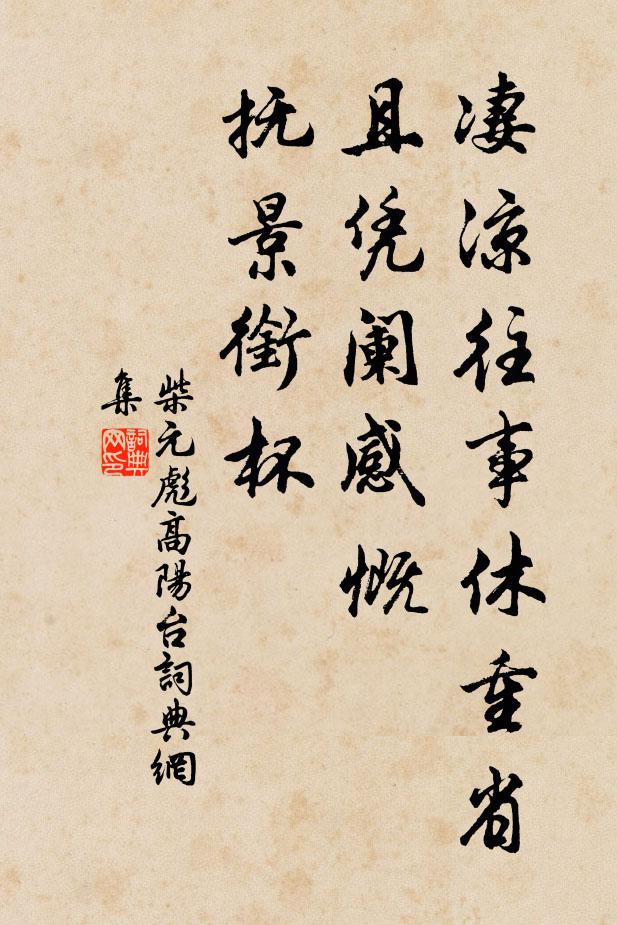 凄凉往事休重省
且凭阑感慨
抚景銜杯
柴元彪高陽台詞典網
集
詞典
网印